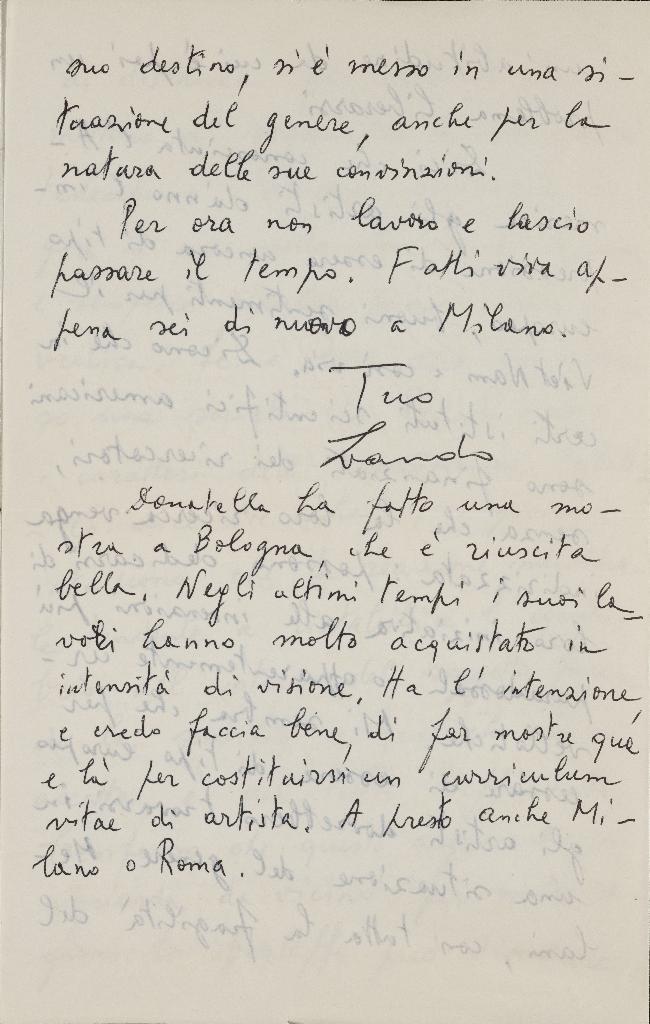 suo destino, si è messo in una si-
tuazione del genere, anche per la
natura delle sue convinzioni.
Per ora non lavoro e lascio
passare il tempo. Fatti viva ap-
pena sei di nuovo a Milano.
Tuo
Lando
Donatella ha fatto una mo-
stra a Bologna, che è riuscita
bella. Negli ultimi tempi i suoi la-
vori hanno molto acquistato in
intensità di visione. Ha l'intenzione,
e credo faccia bene, di far mostre quà
e là per costituirsi un curriculum
vitae di artista. A presto anche Mi-
lano o Roma.